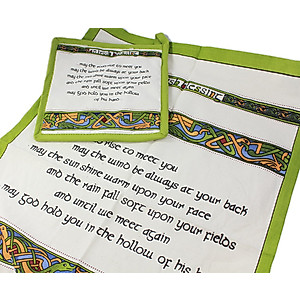 may the road rise to meet you
may the wind be always at your back
may the sun shine warm upon your face
and the rain fall soft upon your fields
and until we meet again
may God hold you in the hollow
of his hand
Blessing
rise to meet you
may the wind be always at your back
may the sun shine warm upon your face
and the rain fall soft upon your fields
and until we meet again
may God hold you in the hollow of his